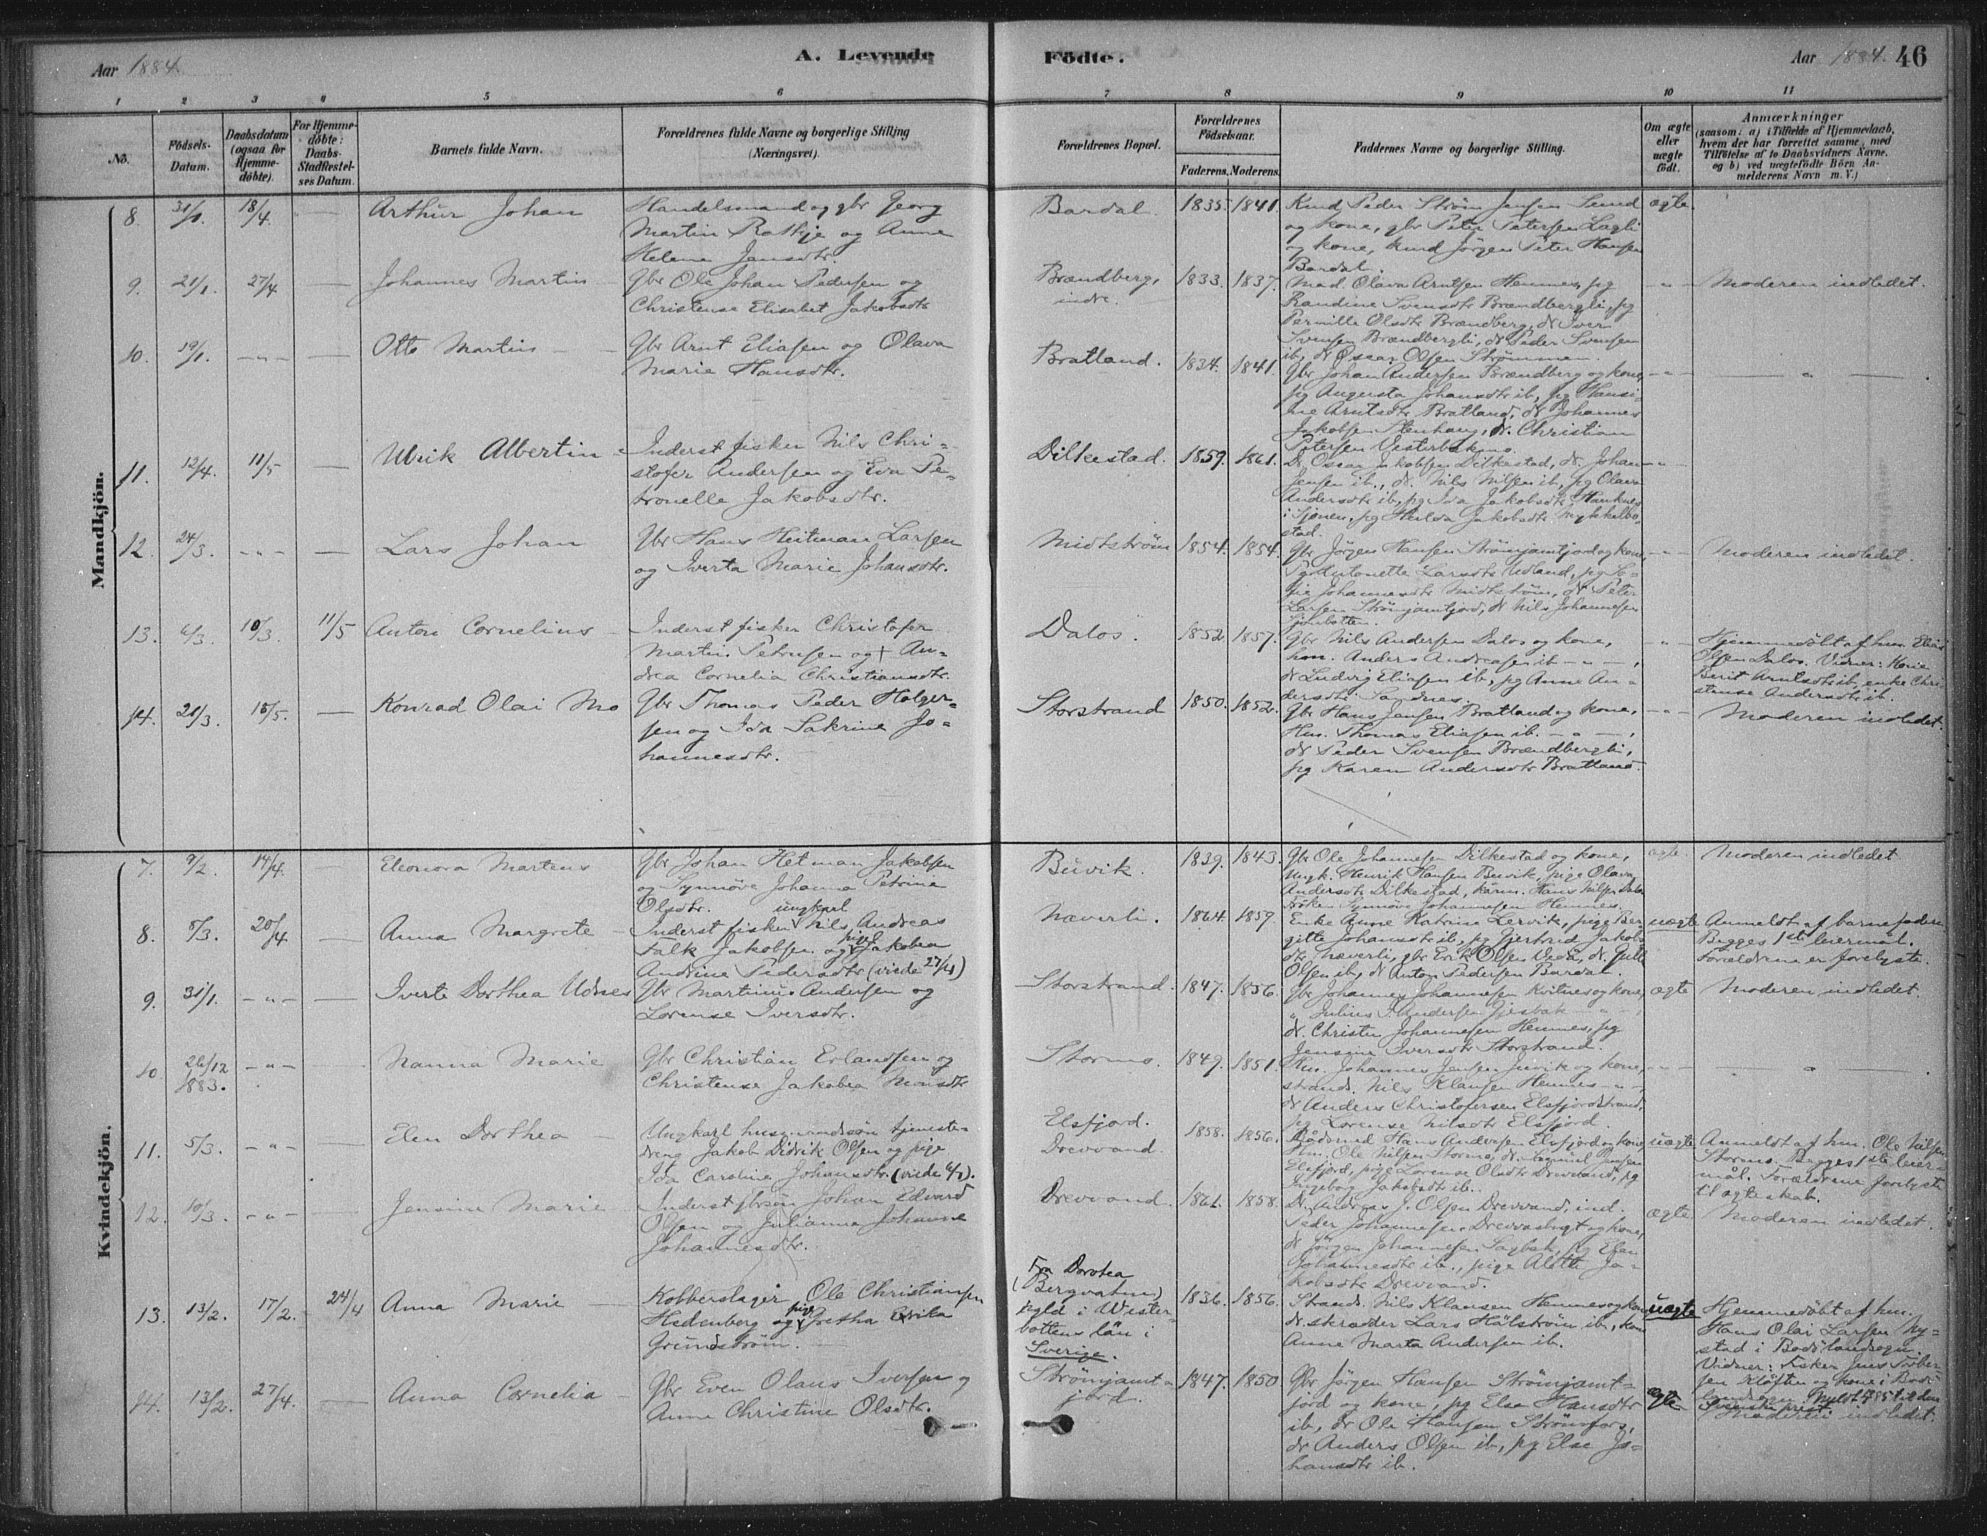 Aar 1884.
A. Levende
Födte.
Aar 1884.
46
1
2
3
4
5
6
7
8
9
10
11
No.
Födsels-
Datum.
Daabsdatum
(ogsaa for
Hjemme-
döbte).
For Hjemme-
döbte:
Daabs-
Stadfestel-
ses Datum.
Barnets fulde Navn.
Forældrenes fulde Navne og borgerlige Stilling
(Næringsvei).
Forældrenes Bopæl.
Forældrenes
Födselsaar.
Faderens. Moderens.
Faddernes Navne og borgerlige Stilling.
Om ægte
eller
uægte
födt.
Anmærkninger
(saasom: a) i Tilfælde af Hjemmedaab,
hvem der har forrettet samme, med
Tilföielse af to Daabsvidners Navne,
og b) ved uægtefödte Börn An-
melderens Navn m. V.)
Mandkjön.
8. 18/4. — Arthur Johan
Handelsmand og gbr Georg
Martin Rathje og Anne
Helene Jensdtr.
Bardal. 1835. 1841.
og kone, gbr Peter Petersen Lægli
og kone, Jörgen Peter Hansen
Bardal.
ægte.
9. 21/1. 27/4 — Johannes Martin
Gbr Ole Johan Pedersen og
Christense Elisabet Jakobsdtr
Brændberg,
indre.
1833. 1837.
Mad. Olava Arntsen Hemnes, pg
Randine Svensdtr Brændbergli, pg
Pernille Olsdtr Brændberg, dr Iver
Svensen Brændbergli, dr Peder Svensen
ib, dr Oscar Olsen Strömmen.
-"- Moderen indledet.
10. 19/1. -"- — Otto Martin
Gbr Arnt Eliasen og Olava
Marie Hansdtr.
Bratland. 1834. 1841.
Gbr Johan Andersen Brændberg og kone,
pg Augusta Johansdtr ib, pg Hansi-
ne Arntsdtr Bratland, dr Johannes
Jakobsen Stenhaug, dr Christian
Petersen
-"- — " —
11. 12/4. 11/5 — Ulrik Albertin
Inderst fisker Nils Chri-
stofer Andersen og Eva Pe-
tronelle Jakobsdtr.
Dilkestad. 1859. 1861.
Dr Oscar Jakobsen Dilkestad, dr Johan
Jensen ib., dr Nils Nilsen ib, pg Olava
Andersdtr ib, pg Ida Jakobsdtr
pg Hulda Jakobsdtr
stad.
-"-
12. 24/3. -"- — Lars Johan
Gbr Hans Heitman Larsen
og Iverta Marie Johansdtr.
Midtström 1854. 1854.
Gbr Jörgen Hansen Strömjamtjord og kone,
Pg Antonette Larsdtr Udland, pg So-
fie Johannesdtr Midtström, dr Peter
Larsen Strömjamtjord, dr Nils Johannesen
-"- Moderen indledet.
13. 6/3. 10/3. 11/5 Anton Cornelius
Inderst fisker Christofer
Martin Petersen og + An-
drea Cornelia Christiansdtr.
Dalos. 1852 1857.
Gbr Nils Andersen Dalos og kone,
hm. Anders Andreasen ib -"-,
dr Ludvig Eliasen ib, pg Anne An-
dersdtr Sandnes.
-"- Hjemmedöbt af hm. Elias
Olsen Dalos. Vidner: Kone
Berit Arntsdtr ib, enke Chri-
stense Andersdtr ib.
14. 21/3. 15/5. — Konrad Olai Mo
Gbr Thomas Peder Holger-
sen og Ida Sakrine Jo-
hannesdtr.
Storstrand 1850. 1852.
Gbr Hans Jensen Bratland og kone,
Hm. Thomas Eliasen ib. -"-,
dr Peder Svensen Brændbergli,
pg Karen Andersdtr Bratland.
-"- Moderen indledet.
Kvindekjön.
7. 9/2. 14/4. — Eleonora Martens
Gbr Johan Hetman Jakobsen
og Synnöve Johanna Petrine
Olsdtr.
Buvik. 1839. 1843.
Gbr Ole Johannesen Dilkestad og kone,
Ungk. Henrik Hansen Buvik, pige Olava
Andersdtr Dilkestad, Hans Nilsen
fröken Synnöve Johannesen Hemnes.
ægte Moderen indledet
8. 8/3. 20/4 — Anna Margrete
ungkarl
Inderst fisker Nils Andreas
Falk Jakobsen og pige Jakobea
Andrine Pedersdtr (viede 27/4)
Næverli. 1864. 1859.
Enke Anne Katrine Lervik, pige Ber-
gitte Johansdtr ib, pg Gjertrud Jakobs-
dtr Næverli, gbr Erik Olsen
Olsen ib, dr Anton Pedersen Bardal.
uægte Anmeldt af barnefaderen
Begges 1ste leiermaal.
Forældrene er forlyste.
9. 31/1. -"- — Iverte Dorthea Udnes
Gbr Martinus Andersen og
Lorense Iversdtr.
Storstrand. 1847. 1856.
Gbr Johannes Johannesen Kvitnes og kone,
" Julius Andersen -"-
dr Christen Johannesen Hemnes, pg
Jensine Iversdtr Storstrand.
ægte Moderen indledet.
10. 26/12
1883. -"- — Nanna Marie
Gbr Christian Erlandsen og
Christense Jakobea Monsdtr
Stormo. 1849. 1851.
Hm. Johannes Jensen og kone,
strands. Nils Klausen Hemnes -"-,
dr Anders Christofersen Elsfjordstrand,
pg Lorense Nilsdtr Elsfjord.
-"- — " —
11. 5/3. -"- — Elen Dorthea
Ungkarl husmandssön tjeneste-
dreng Jakob Didrik Olsen og pige
Ida Caroline Johansdtr (viede 4/5).
Elsfjord.
Drevvand.
1858. 1856.
Hans Andersen Elsfjord og kone,
Hm. Ole Nilsen Stormo, dr Samuel Jensen
Elsfjord, pige Lorense Olsdtr Drevvand, pg
Ingeborg Jakobsdtr ib.
uægte Anmeldt af hm. Ole Nilsen
Stormo. Begges 1ste leier-
mål. Forældrene forlyste
til ægteskab.
12. 10/3. -"- — Jensine Marie
Inderst gbrsön Johan Edvard
Olsen og Julianna Johanne
Johannesdtr.
Drevvand. 1861. 1858.
Dr Andreas J. Olsen Drevvand, ind.
Peder Johannesen Drevvasbugt og kone,
dr Jörgen Johannesen pg Elen
Johannesdtr ib., pige Aletta Ja-
kobsdtr Drevvand.
ægte Moderen indledet.
13. 13/2. 17/2. 24/4 Anna Marie
Kobberslager Ole Christiansen
Hedenberg og pige Gretha Erika
Grundström.
Fra Dorotea
(Bergvatn)
i Wester-
bottens län i
Sverige.
1836. 1856.
Strands. Nils Klausen Hemnes og kone
dr skræder Lars Hälström ib, kone
Anne Marta Andersen ib.
uægte Hjemmedöbt af hm.
Hans Olai Larsen Ny-
stad i Bodö landsogn.
Vidner: Fisker Jens
og kone i Bodö
landsogn.
14. 13/2. 27/4. — Anna Cornelia
Gbr Even Olaus Iversen og
Anne Christine Olsdtr.
Strömjamt-
jord.
1847. 1850
Gbr Jörgen Hansen Strömjamt-
jord og kone, pg Else Hansdtr
ib, dr Ole Hansen Strömfors,
dr Anders Olsen ib, pg Else Jo-
hansdtr ib.
ægte Moderen indledet.